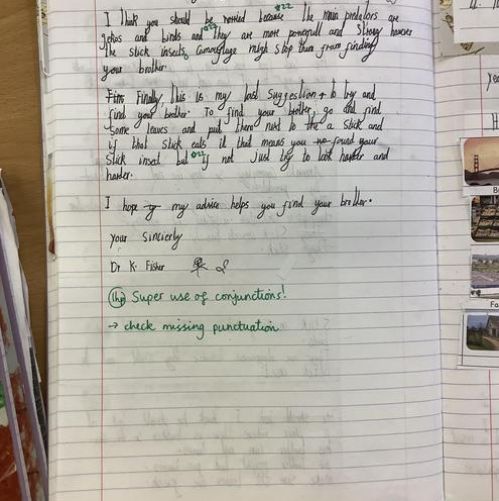 I think you should be worried because the main predators are
gekos and birds and they are more powerfull and strong however
the stick insects camouflage migh stop them from finding
your brother.
Finally, this is my last suggestion to try and
find your brother. To find your brother, go and find
some leaves and put there next to the a stick and
if that stick eats it that means you no found your
stick insect but if not Just try to look harder and
harder.
I hope my advice helps you find your brother.
your Sincierly
Dr K. Fisher
1hp Super use of conjunctions!
→ check missing punctuation